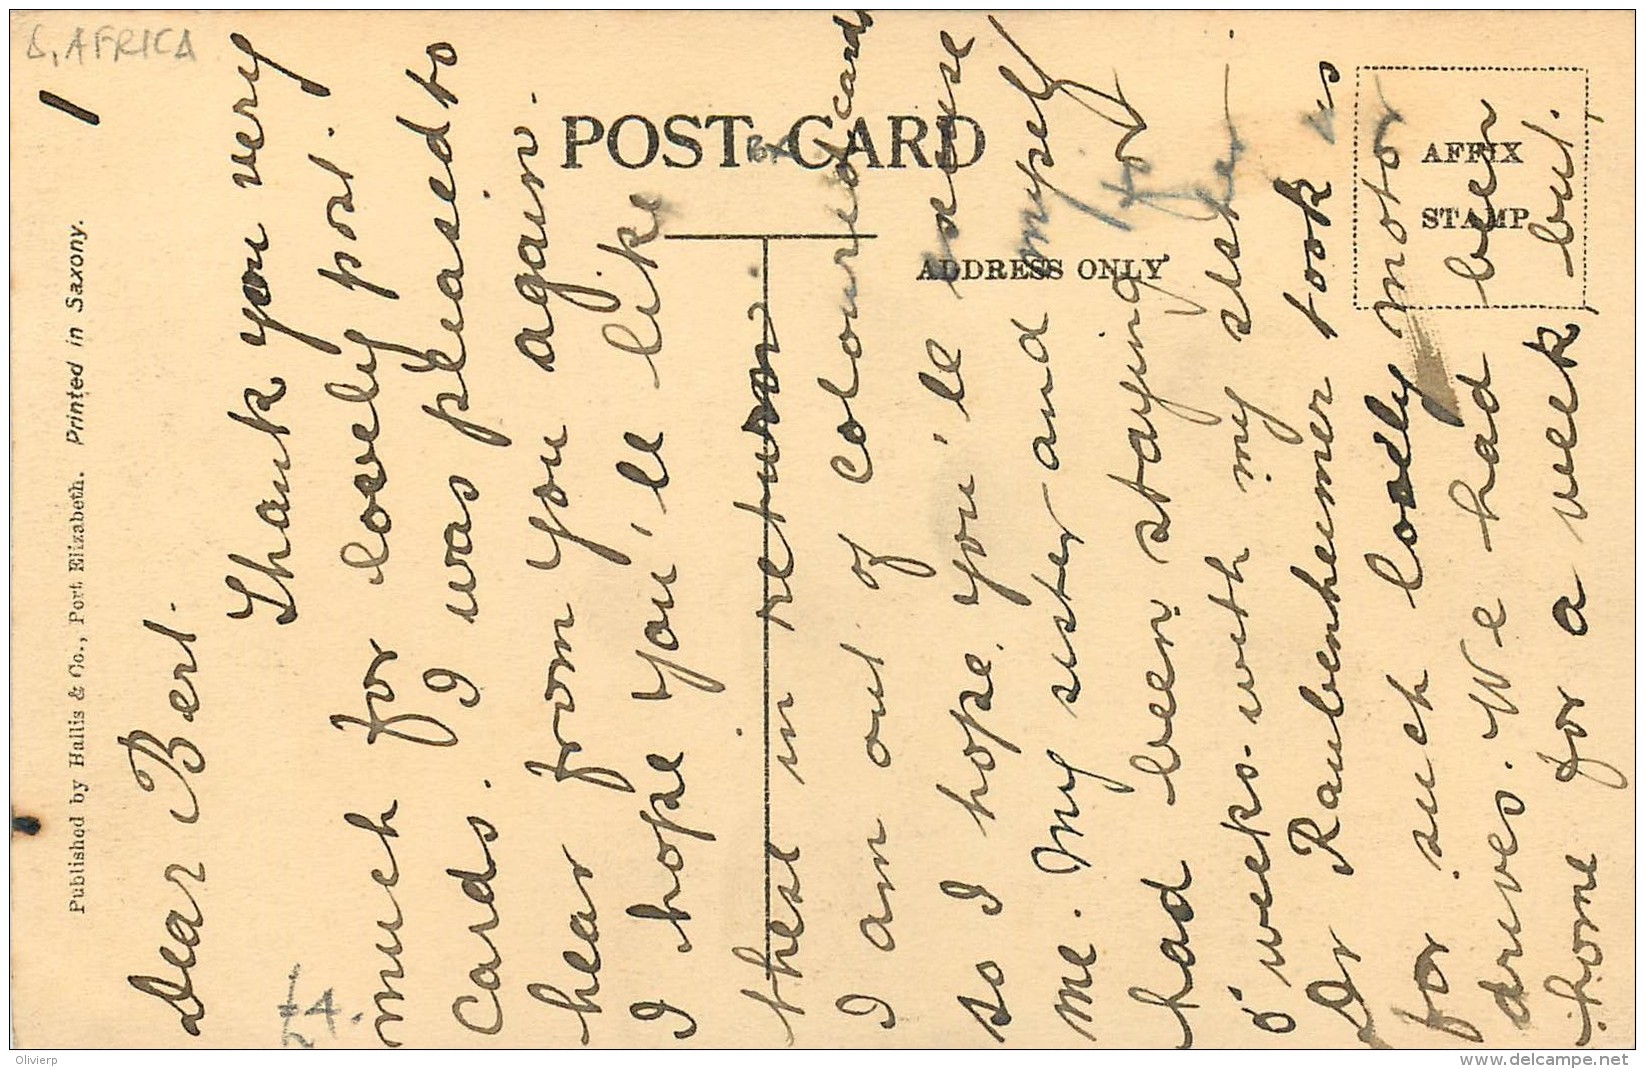 S. AFRICA
POST CARD
ADDRESS ONLY
AFFIX
STAMP
Published by Hallis & Co., Port Elizabeth. Printed in Saxony.
Dear Bert.
Thank you very
much for lovely post.
cards. I was pleased to
hear from you again.
I hope you'll like
these in return
I am out of coloured cards
so I hope you'll excuse
me. My sister and myself
had been staying for
weeks with my sister
Dr Raubenheimer took us
for such lovely motor
drives. We had been
home for a week but.
4.
Oliverp
www.delcampe.net